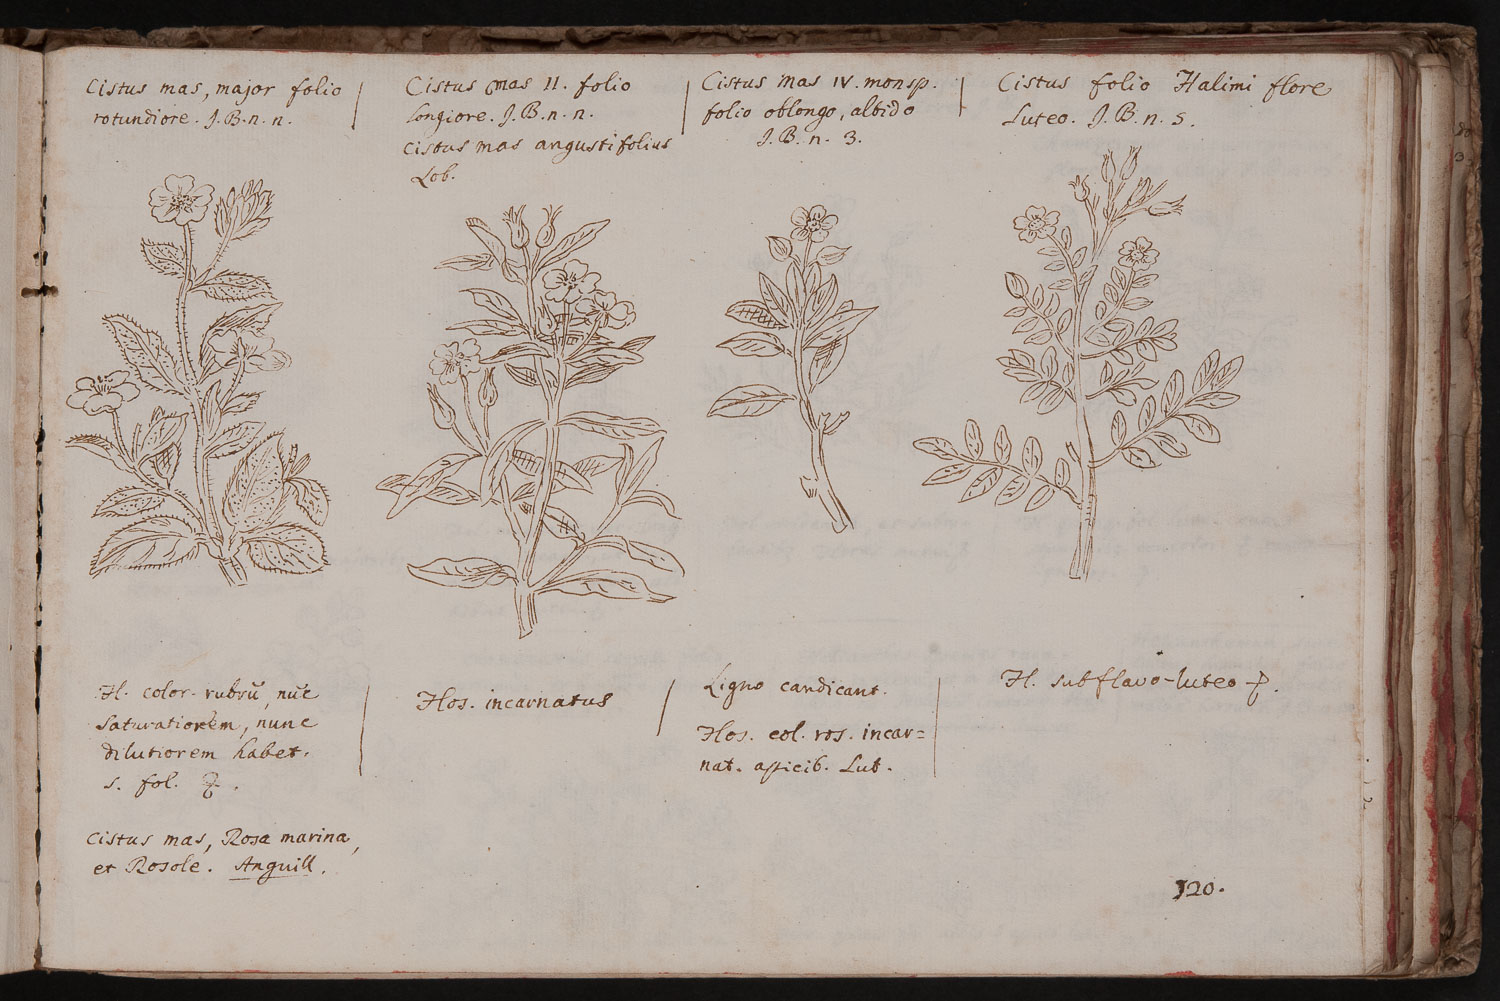 Cistus mas, major folio
rotundiore. J.B. n. n.
Cistus mas II. folio
longiore. J.B. n. n.
Cistus mas angustifolius
Lob.
Cistus mas IV. monsp.
folio oblongo, albido
J.B. n. 3.
Cistus folio Halimi flore
Luteo. J.B. n. 5.
Fl. color. rubrū, nūc
saturatiorem, nunc
dilutiorem habet.
s. fol.
Cistus mas, Rosa marina,
et Rosole. Anguill.
Flos. incarnatus
Ligno candicant.
Flos. col. ros. incar=
nat. apicib. Lut.
Fl. subflavo-luteo
120.